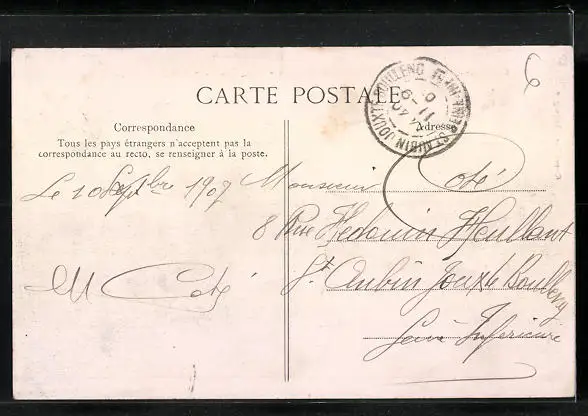 CARTE POSTALE
Correspondance
Tous les pays étrangers n'acceptent pas la
correspondance au recto, se renseigner à la poste.
Le 10 Sepbre 1907
M Coté
Adresse
Monsieur Coté
8 Rue Hedouin Heullant
St Aubin Jouxte Boulleng
Seine Inferieure
ST AUBIN JOUXTE BOULLENG
6